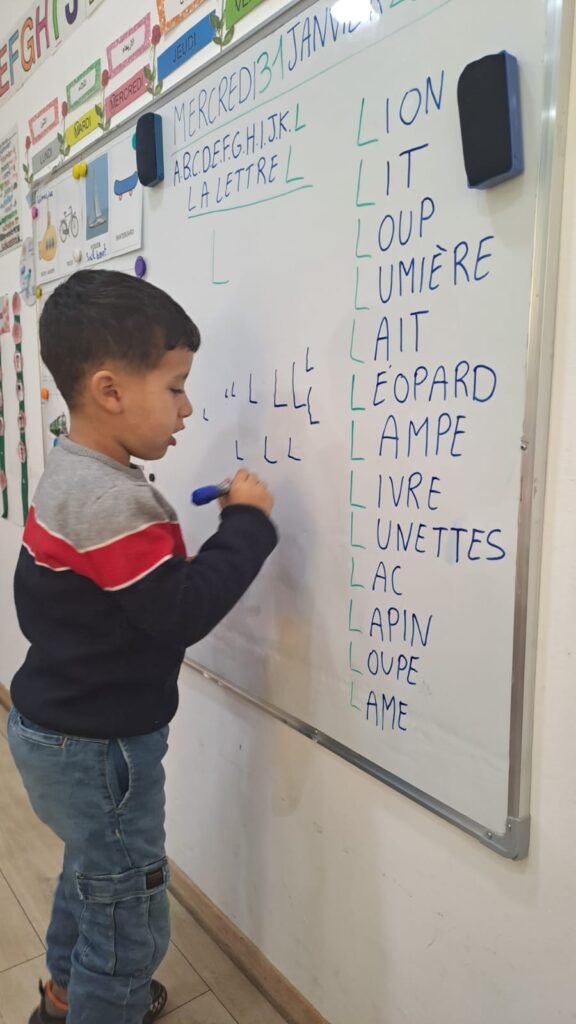 EFGHIJ
JEUDI
MERCREDI
MARDI
LUNDI
MERCREDI 31 JANVIER
A.B.C.D.E.F.G.H.I.J.K.L
LA LETTRE L
L
L L L L L L L L
L L L
LION
LIT
LOUP
LUMIÈRE
LAIT
LÉOPARD
LAMPE
LIVRE
LUNETTES
LAC
LAPIN
LOUPE
LAME